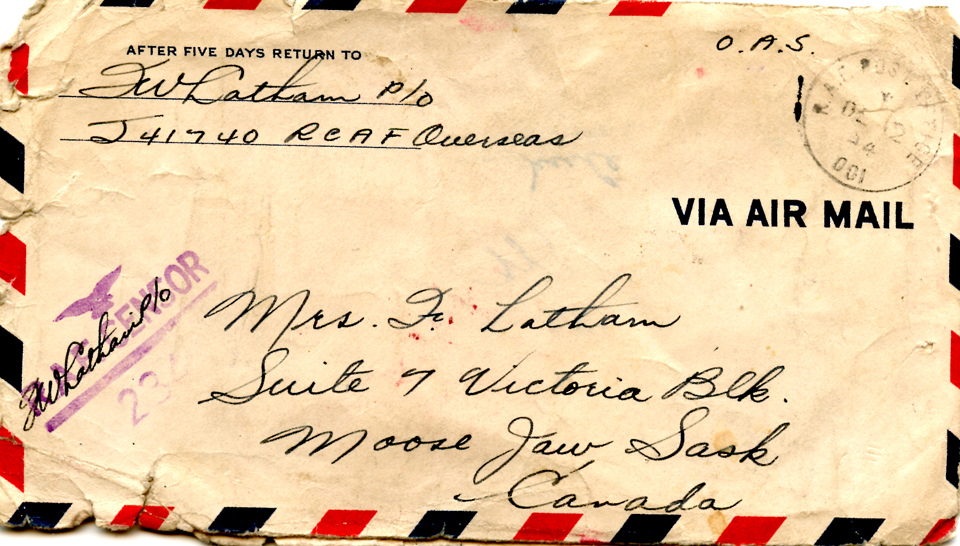 O.A.S.
AFTER FIVE DAYS RETURN TO
FW Latham P/O
J41740 RCAF Overseas
R.A.F. POST OFFICE
DE 2
44
001
VIA AIR MAIL
CENSOR
234
FW Latham P/O
Mrs. F. Latham
Suite 7 Victoria Blk.
Moose Jaw Sask
Canada